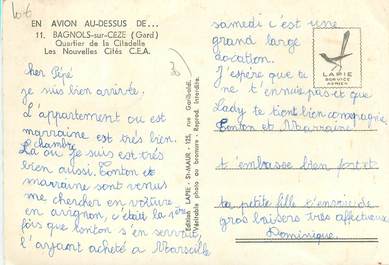 EN AVION AU-DESSUS DE...
11. BAGNOLS-sur-CEZE (Gard)
Quartier de la Citadelle
Les Nouvelles Cités C.E.A.
cher Pépé
je suis bien arrivée.
L'appartement ou est
marraine est très bien.
chambre
La ou je suis est très
bien aussi. Tonton et
marraine sont venus
me chercher en voiture
en avignon, c'était la 1ère
fois que tonton s'en servait,
l'ayant acheté a Marseille
Edition LAPIE - St-MAUR - 125, rue Garibaldi.
Véritable photo au bromure - Reprod. interdite.
samedi c'est une
grand large
location.
J'espère que tu
ne t'ennuie pas et que
Lady te tient bien compagnie
Tonton et Marraine
t'embrasse bien fort et
ta petite fille t'envoie de
gros baisers très affectueux
Dominique.
LAPIE
SERVICE
AERIEN